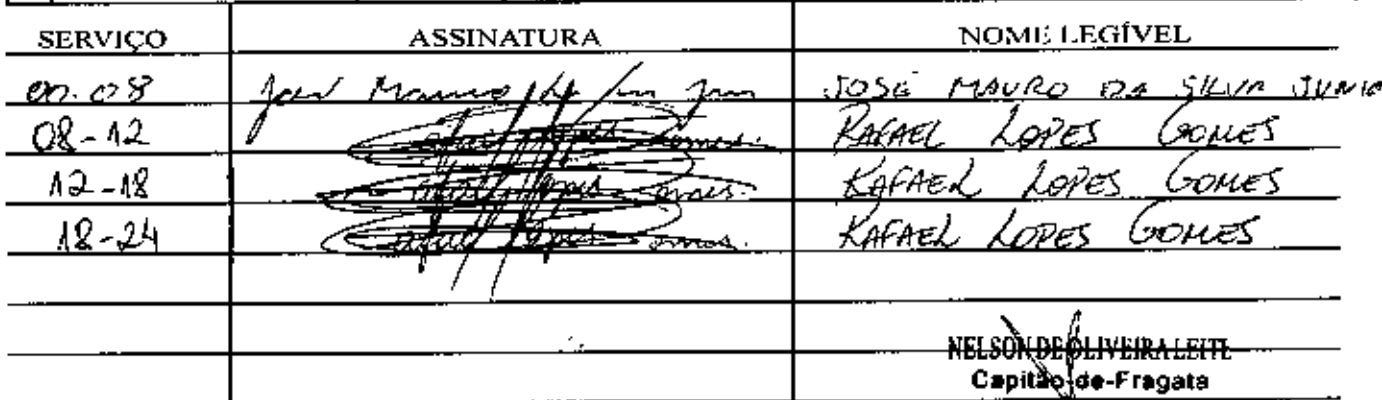 SERVIÇO ASSINATURA NOME LEGÍVEL
00-08 José Mauro da JOSÉ MAURO DA SILVA JUNIO
08-12 Lopes Gomes. RAFAEL LOPES GOMES
12-18 Lopes Gomes. RAFAEL LOPES GOMES
18-24 Rafael Lopes Gomes. RAFAEL LOPES GOMES
NELSON DE OLIVEIRA LEITE
Capitão-de-Fragata